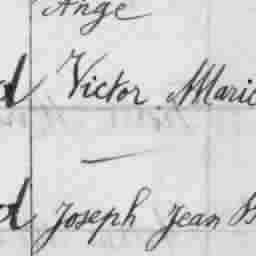 Ange
d Victor Marie
d Joseph Jean